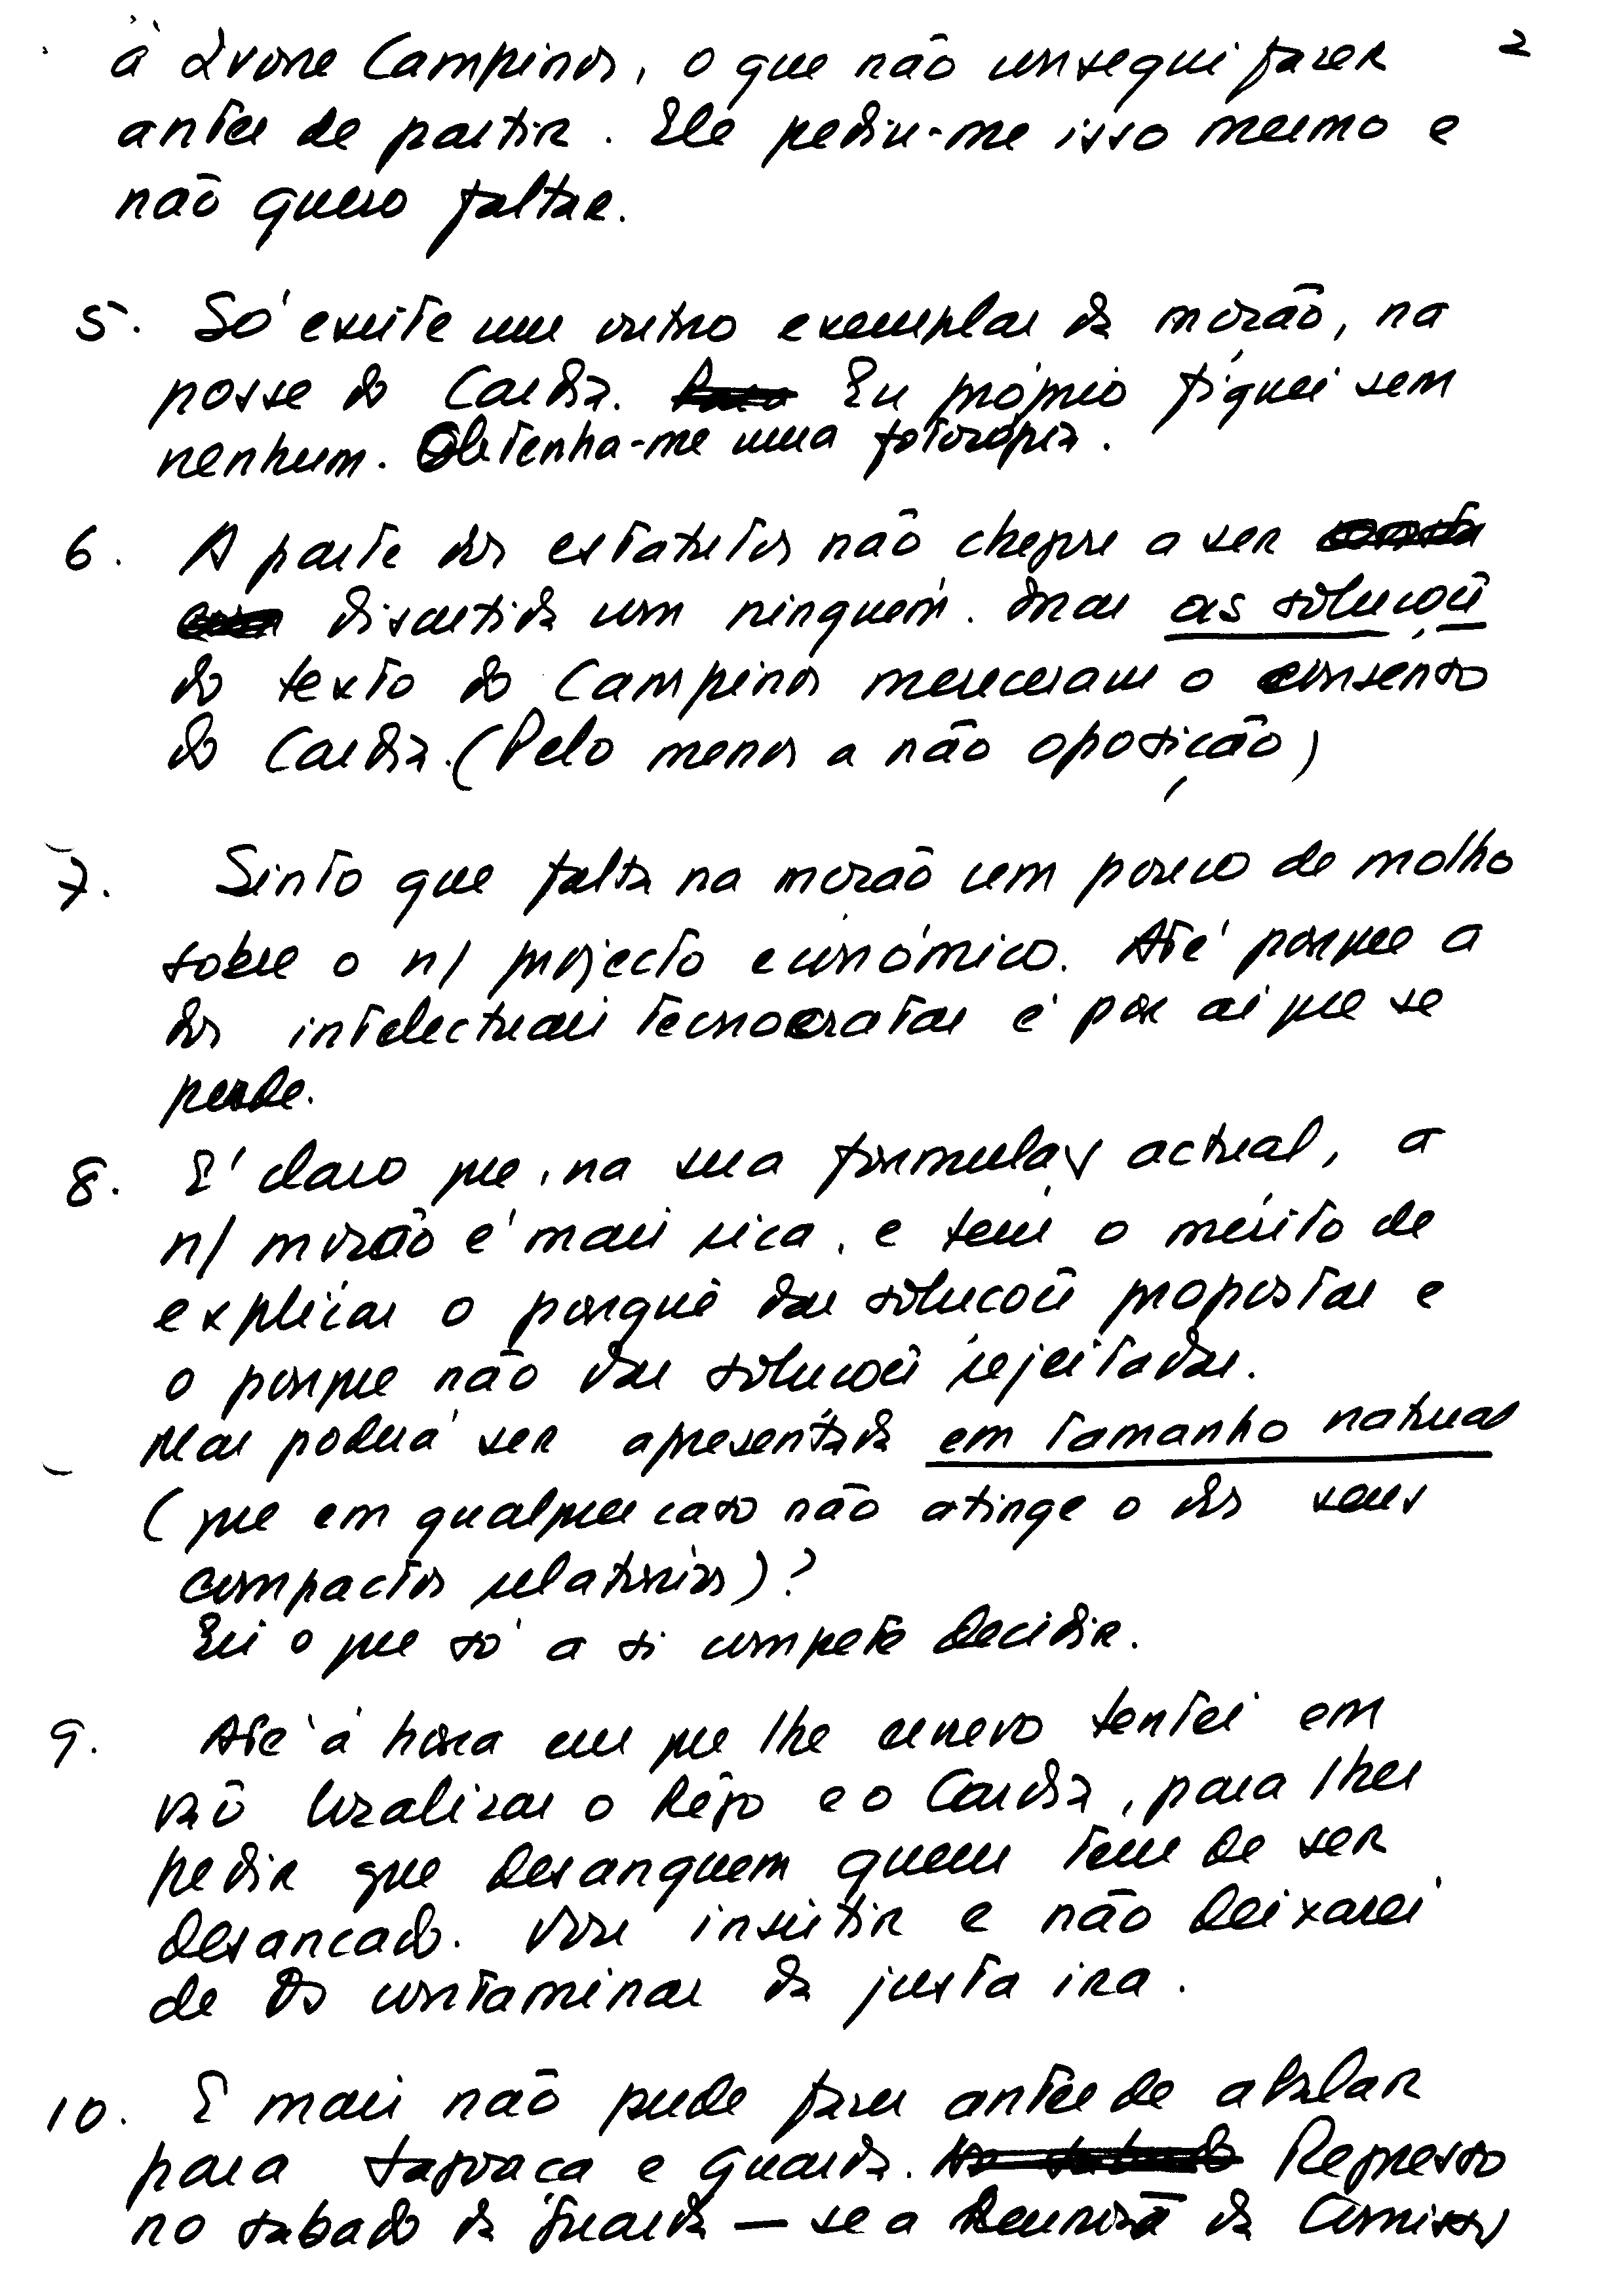 2
à Ivone Campinos, o que não consegui fazer
antes de partir. Ele pediu-me isso mesmo e
não quero faltar.
5. Só existe um outro exemplar da moção, na
posse do Cardia. Eu próprio fiquei sem
nenhum. Obtenha-me uma fotocópia.
6. A parte dos estatutos não chegou a ser
discutida com ninguém. Mas as soluções
do texto do Campinos mereceram o consenso
do Cardia. (Pelo menos a não oposição)
7. Sinto que falta na moção um pouco de molho
sobre o n/ projecto económico. Até porque a
dos intelectuais tecnocratas é por aí que se
perde.
8. É claro que, na sua formulaç actual, a
n/ moção é mais rica, e tem o mérito de
explicar o porquê das soluções propostas e
o porque não das soluções rejeitadas.
Mas poderá ser apresentada em tamanho natural
(que em qualquer caso não atinge o dos seus
compactos relatórios)?
Eis o que só a si compete decidir.
9. Até à hora em que lhe escrevo tentei em
vão localizar o Rêgo e o Cardia, para lhes
pedir que desanquem quem tem de ser
desancado. Vou insistir e não deixarei
de os contaminar da justa ira.
10. E mais não pude fazer antes de abalar
para Tabuaça e Guarda. Regresso
no sabado da Guarda — se a Reunião da Comissão